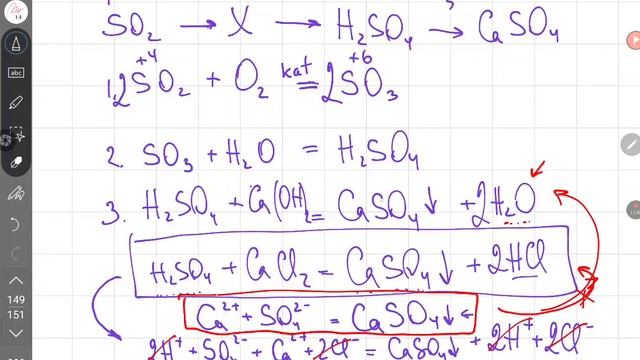 SO₂ → X → H₂SO₄ → CaSO₄
+4 +6
1. 2SO₂ + O₂ кат = 2SO₃
2. SO₃ + H₂O = H₂SO₄
3. H₂SO₄ + Ca(OH)₂ = CaSO₄↓ + 2H₂O
H₂SO₄ + CaCl₂ = CaSO₄↓ + 2HCl
Ca²⁺ + SO₄²⁻ = CaSO₄↓
2H⁺ + SO₄²⁻ + Ca²⁺ + 2Cl⁻ = CaSO₄↓ + 2H⁺ + 2Cl⁻
abc
149
151